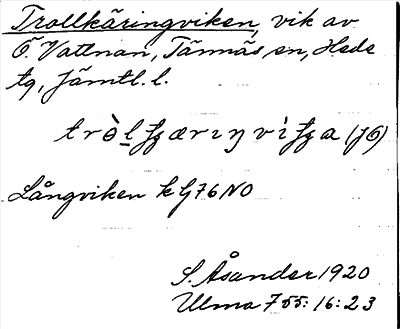 Trollkäringviken, vik av
Ö. Vattnan, Tännäs sn, Hede
tg, Jämtl. l.
Långviken k G76 NO
S. Åsander 1920
Ulma 755: 16: 23